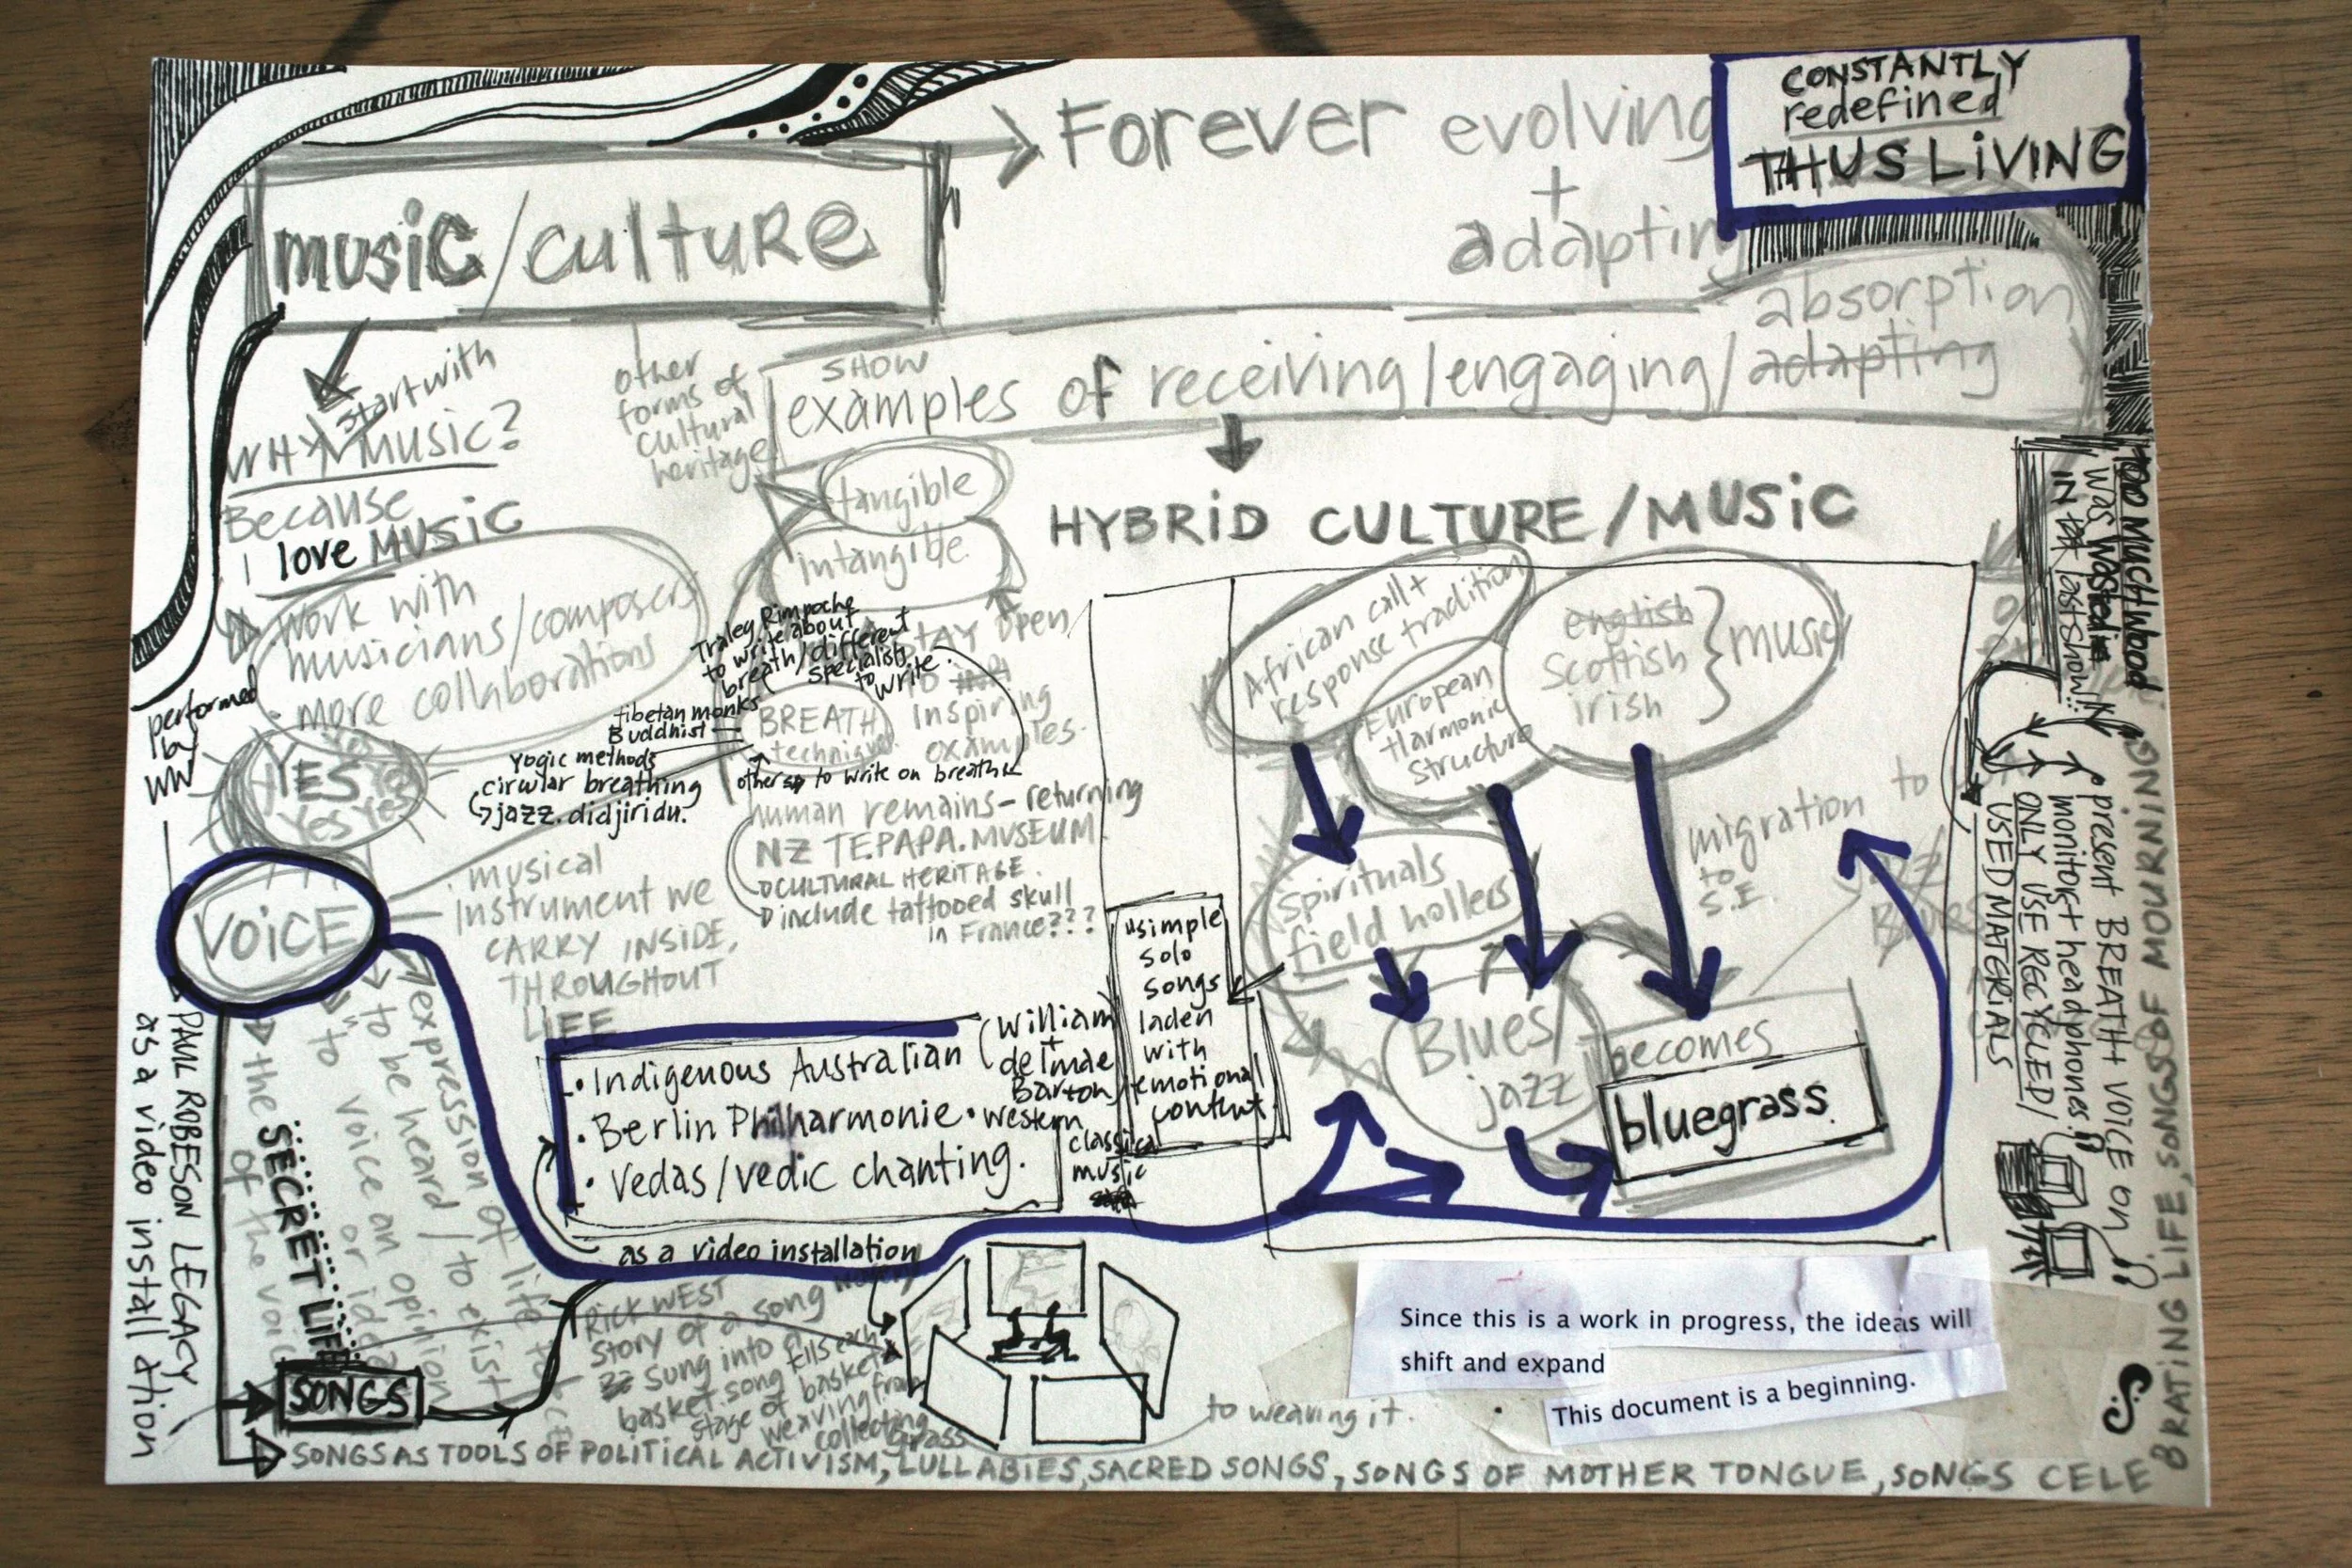 CONSTANTLY
redefined
THUS LiViNG
Forever evolving
+
adapting
music/culture
absorption
SHOW
examples of receiving/engaging/adapting
start with
WHY MUSiC?
Because
I love MUSiC
other
forms of
cultural
heritage
tangible
intangible
HYBRiD CULTURE/MUSiC
Work with
musicians/composers
more collaborations
performed
by
YES
Yes Yes
Traleg Rimpoche
to write about
breath/different
specialists
to write.
STAY open
to
inspiring
examples.
BREATH
technique
tibetan monks
Buddhist
Yogic methods
circular breathing
jazz. didjiridu.
others to write on breath
human remains - returning
NZ TE.PAPA.MUSEUM
CULTURAL HERITAGE.
include tattooed skull
in France???
African call +
response tradition
European
Harmonic
structure
english
Scottish
irish
} music
Spirituals
field hollers
migration to
to
S.E.
Blues/
jazz
becomes
bluegrass.
"simple
solo
songs
laden
with
emotional
content.
VOiCE
musical
instrument we
CARRY INSIDE,
THROUGHOUT
LIFE
• Indigenous Australian (William
+
delmae
Barton)
• Berlin Philharmonie • western
classical
music
• Vedas/vedic chanting.
as a video installation
expression of life
to be heard / to exist
to "voice an opinion
or idea
the SECRET LIFE
of the voice
PAUL ROBESON LEGACY
as a video installation
SONGS
RICK WEST
Story of a song
Sung into a
basket. song tells each
stage of basket
weaving from
collecting
grass
to weaving it.
SONGS AS TOOLS OF POLITICAL ACTIVISM, LULLABIES, SACRED SONGS, SONGS OF MOTHER TONGUE, SONGS CELE
BRATING LIFE, SONGS OF MOURNING
TOO MUCH WOOD
was wasted
IN last show!!
present BREATH + VOICE on
monitors + headphones.
ONLY USE RECYCLED/
USED MATERIALS
Since this is a work in progress, the ideas will
shift and expand
This document is a beginning.